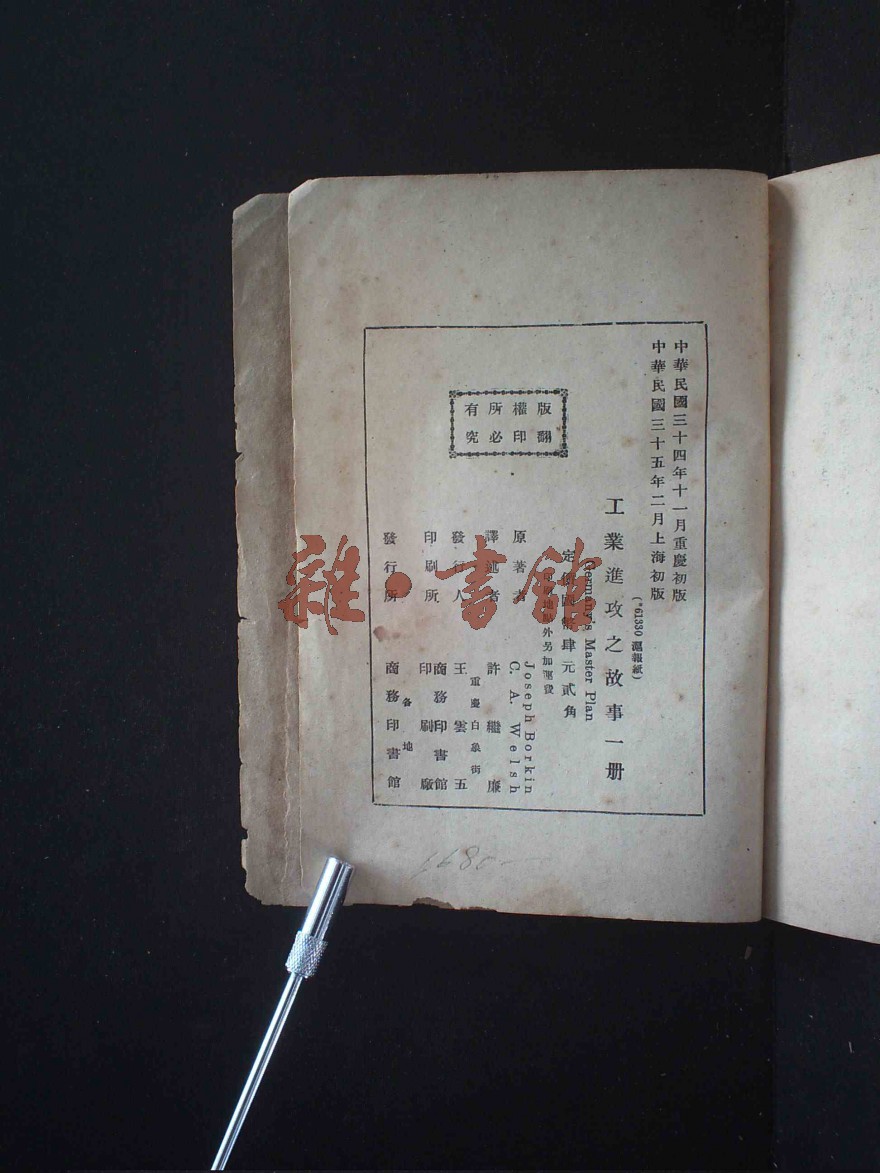 中華民國三十四年十一月重慶初版
中華民國三十五年二月上海初版
(*61330 滬報紙)
工業進攻之故事一册
Germany's Master Plan
定價國幣肆元貳角
印刷地點外另加運費
版權所有
翻印必究
原著者 Joseph Borkin
C. A. Welsh
譯述者 許繼廉
發行人 王雲五
重慶白象街
印刷所 商務印書館
印刷廠
發行所 各地
商務印書館
雜·書館